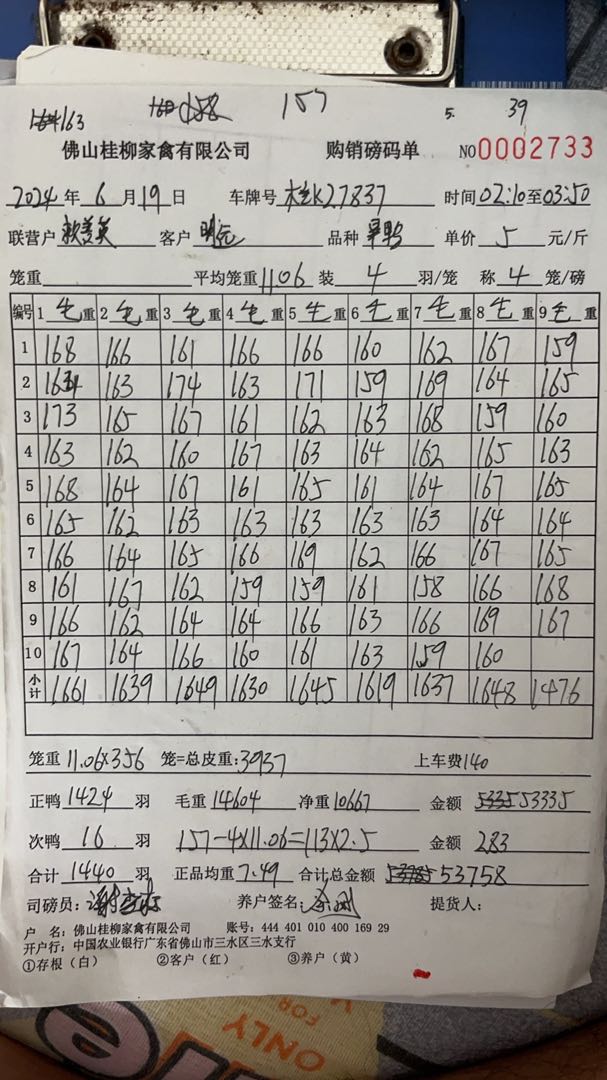 163 158 157 5. 39
佛山桂柳家禽有限公司 购销磅码单 NO0002733
2024年6月19日 车牌号 桂K27837 时间02:10至03:50
联营户 客户 明记 品种 单价 5 元/斤
笼重 平均笼重11.06 装 4 羽/笼 称 4 笼/磅
编号 1毛重 2毛重 3毛重 4毛重 5毛重 6毛重 7毛重 8毛重 9毛重
1 168 166 161 166 166 160 162 167 159
2 164 163 174 163 171 159 169 164 165
3 173 165 167 161 162 163 168 159 160
4 163 162 160 167 163 164 162 165 163
5 168 164 167 161 165 161 164 167 165
6 165 162 163 163 163 163 163 164 164
7 166 164 165 166 169 162 166 167 165
8 161 167 162 159 159 161 158 166 168
9 166 162 164 164 166 163 166 169 167
10 167 164 166 160 161 163 159 160
小计 1661 1639 1649 1630 1645 1619 1637 1648 1476
笼重 11.06×356 笼=总皮重:3937 上车费140
正鸭 1424 羽 毛重 14604 净重 10667 金额 53335
次鸭 16 羽 157-4×11.06=113×2.5 金额 283
合计 1440 羽 正品均重 7.49 合计总金额 53758
司磅员: 养户签名: 提货人:
户 名: 佛山桂柳家禽有限公司 账号: 444 401 010 400 169 29
开户行: 中国农业银行广东省佛山市三水区三水支行
①存根（白） ②客户（红） ③养户（黄）
ONLY
FOR